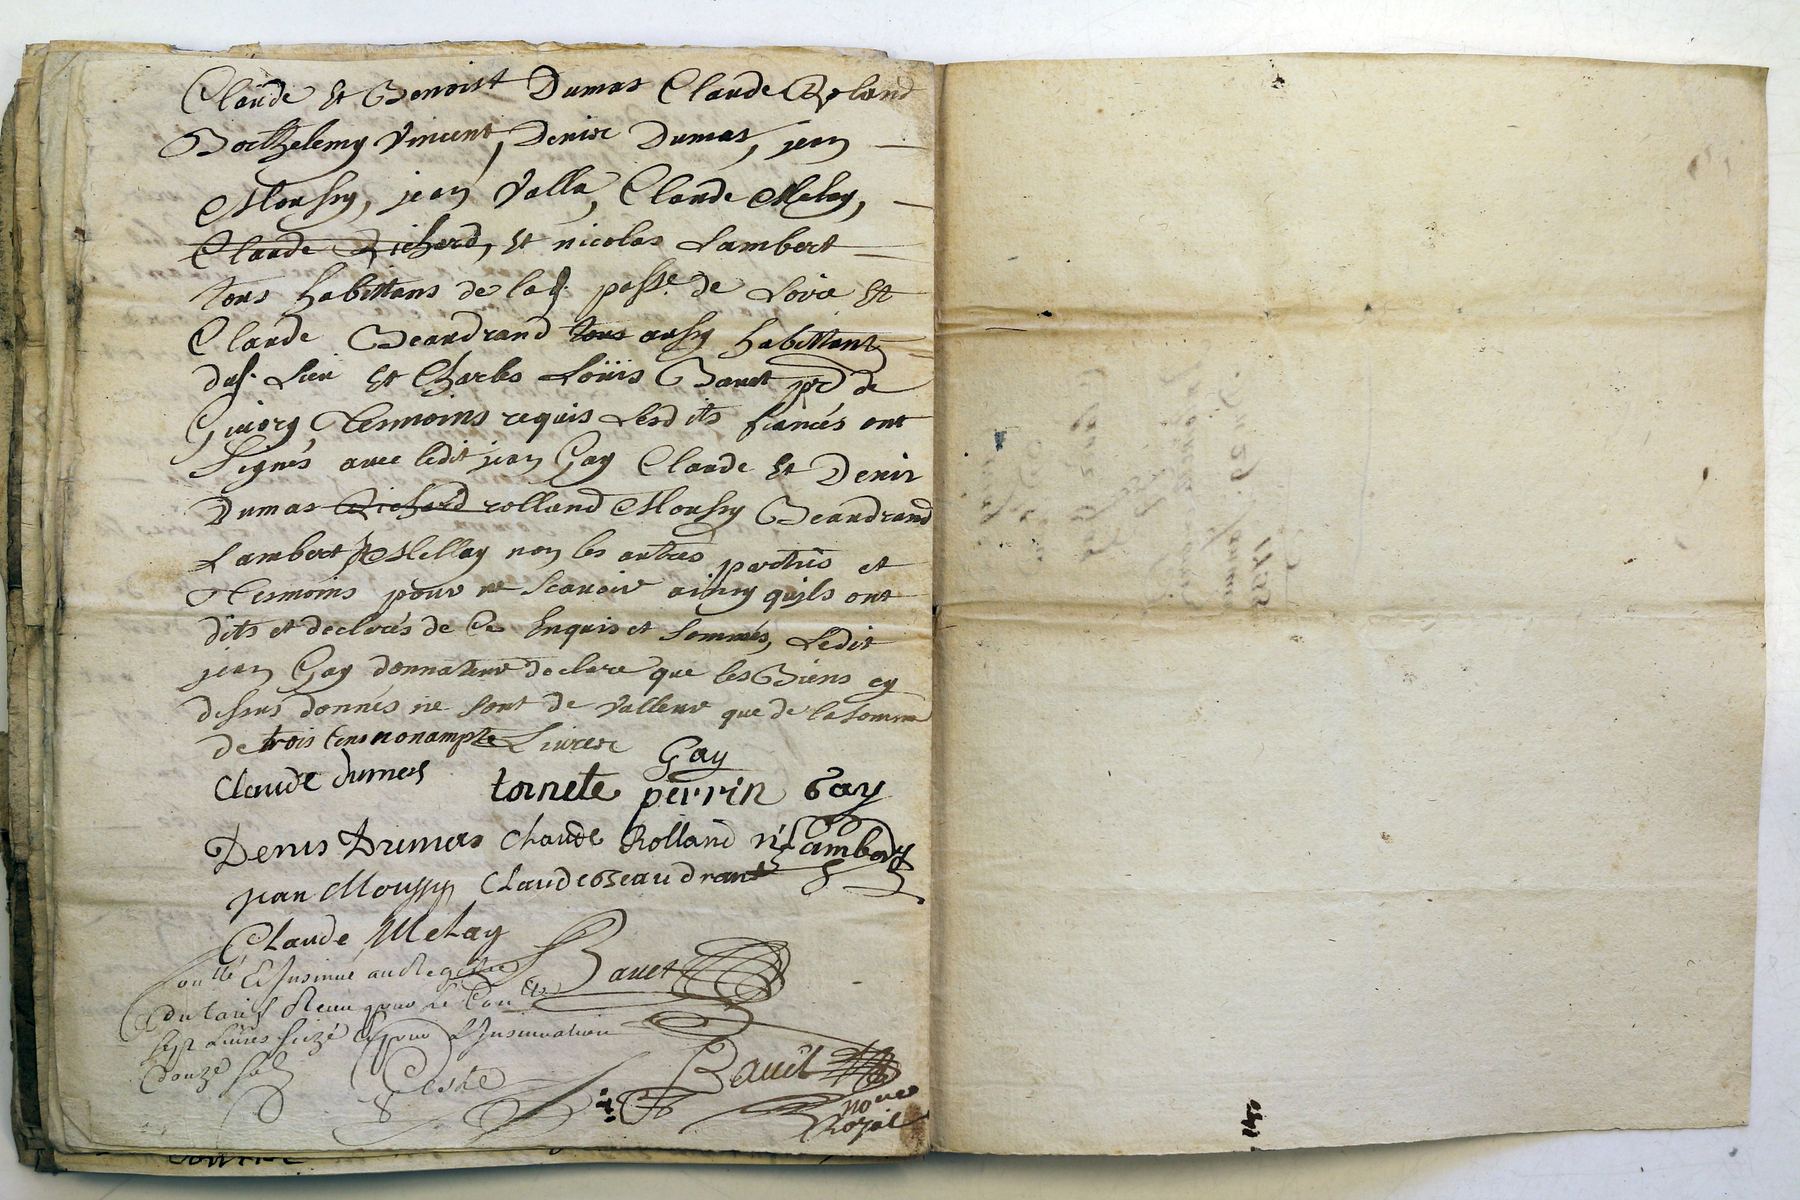 Claude Et Benoist Dumas Claude Roland
Barthelemy Vincent, Denis Dumas, jean
Moussy, jean Valla, Claude Melay,
Claude Richard, Et nicolas Lambert
tous habittans de lad. passe. de Loire Et
Claude Beaudrand tous aussy habittant
dud. Lieu Et Charles Loüis Bauet pr de
Giuory, Tesmoins requis Lesdits fiancés ont
Signés auec ledit jean Gay Claude Et Denis
Dumas Richard rolland Moussy Beaudrand
Lambert Et Mellay non les autres parties et
Tesmoins pour ne Scauoir ainsy quils ont
dits et declarés de Ce Enquis et Sommés, Ledit
jean Gay donnateur declare que les Biens cy
dessus donnés ne Sont de Valleur que de la Somme
de trois Cens nonante Liures
Gay
Claude dumas tornete perrin Gay
Denis Dumas Claude Rolland n. Lambert
jean Moussy Claude Beaudrant
Claude Melay
Bauet
Conllé & Insinué au Registre
du tarif Receu pour le Con
sept Liures seize & pour L'Insinuation
douze sols
Bauet
no re
Royal